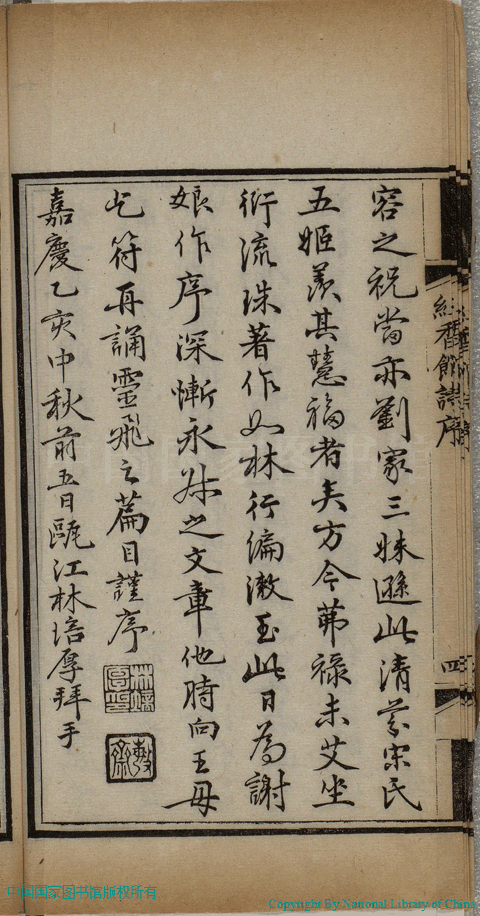 容之祝當亦劉家三妹遜此清芬宋氏
五姬羨其慧福者矣方今茀祿未艾坐
衍流珠著作如林行編漱玉此日為謝
娘作序深慚永叔之文章他時向王母
乞符再誦靈飛之篇目謹序
嘉慶乙亥中秋前五日甌江林培厚拜手
林培厚印
敏齋
紅香館詩序
四
中国国家图书馆版权所有
Copyright By National Library of China